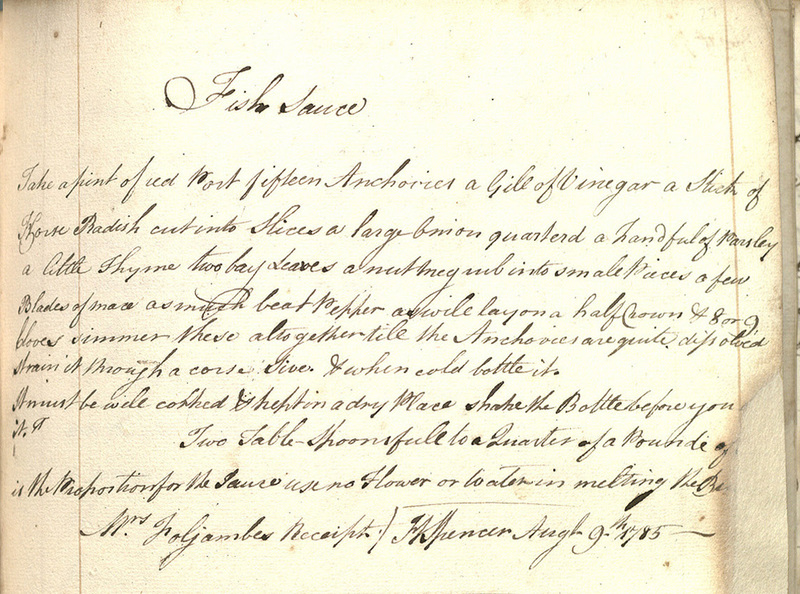 Fish Sauce
Take a pint of red Port fifteen Anchovies a Gill of Vinegar a Stick of
Horse Radish cut into Slices a large Onion quarterd a handful of Parsley
a little Thyme two bay Leaves a nutmeg cub into small Pieces a few
Blades of mace as much beat Pepper as will lay on a half Crown & 8 or 9
Cloves simmer these altogether till the Anchovies are quite dissolved
strain it through a corse Sive & when cold bottle it.
It must be well corked & kept in a dry Place shake the Bottle before you
it.
Two Table-Spoonsfull to a Quarter of a Pound of
is the Proportion for the Sauce use no Flower or Water in melting the
Mrs Foljambes Receipt Spencer Augt 9th 1785